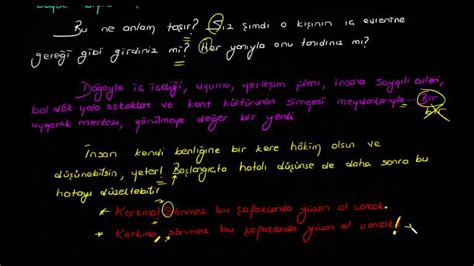 Bu ne anlam taşır? Siz şimdi o kişinin iç evrenine
gereği gibi girdiniz mi? Her yanıyla onu tanıdınız mı?
Doğayla iç içeliği, uyumu, yerleşim planı, insana saygılı evleri,
bol dök yala sokakları ve kent kültürünün simgesi meydanlarıyla... Bir
uygarlık merkezi, görülmeye değer bir yerdi
İnsan kendi benliğine bir kere hâkim olsun ve
düşünebilsin, yeter! Başlangıçta hatalı düşünse de daha sonra bu
hatayı düzeltebilir
* Korkma! Sönmez bu şafaklarda yüzen al sancak.
* Korkma, sönmez bu şafaklarda yüzen al sancak!